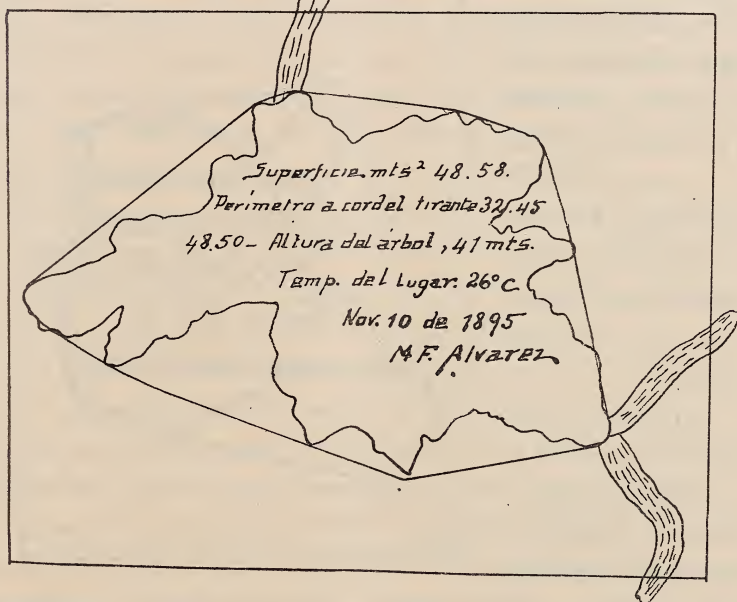 Superficie mts² 48.58.
Perímetro a cordel tirante 32.45
48.50 - Altura del árbol, 41 mts.
Temp. del Lugar. 26°C
Nov. 10 de 1895
M F. Alvarez